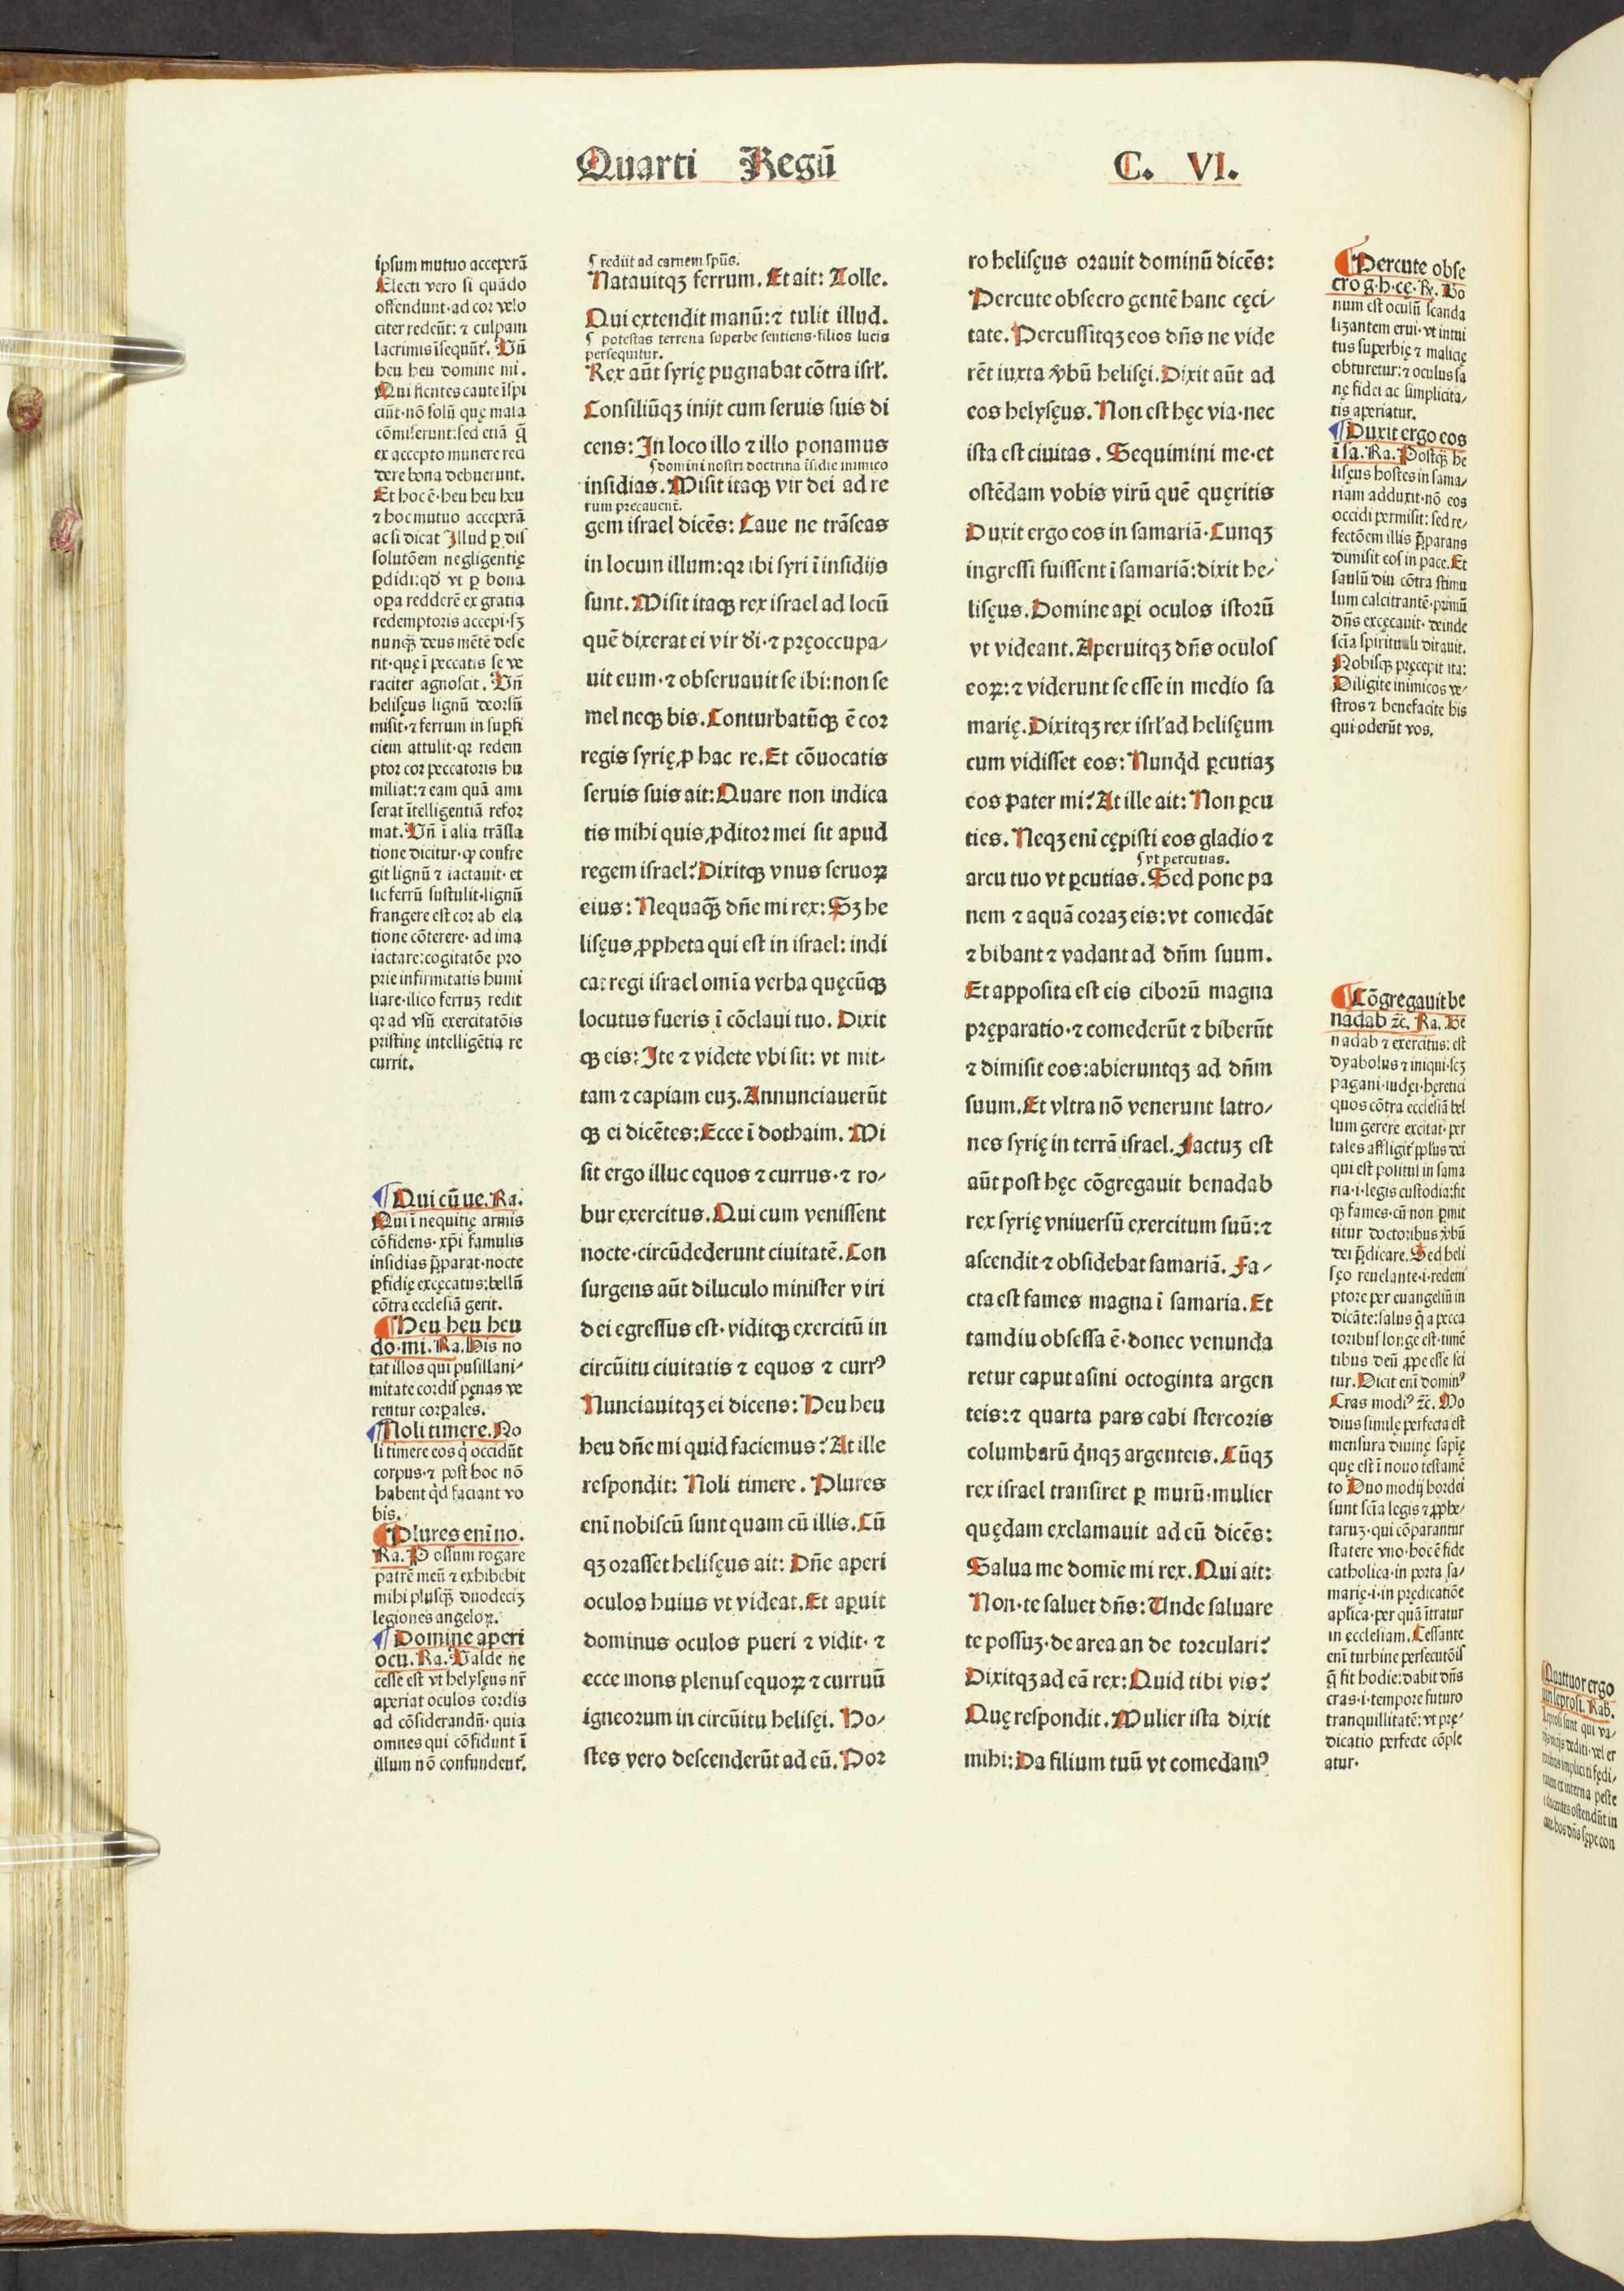 Quarti Regū C. VI.
ipsum mutuo acceperā
Electi vero si quādo
offendunt·ad cor velo
citer redeūt: ⁊ culpam
lacrimis īsequūt᷑. Vn̄
heu heu domine mi.
Qui flentes caute īspi
ciūt·nō solū quę mala
cōmiserunt:sed etiā q̄
ex accepto munere red
dere bona debuerunt.
Et hoc ē·heu heu heu
⁊ hoc mutuo acceperā
ac si dicat Illud ꝑ dis
solutōem negligentię
ꝑdidi:qd̄ vt ꝑ bona
oꝑa redderē ex gratia
redemptoris accepi·sꝫ
nunqꝫ deus mētē dese
rit·quę ī peccatis se ve
raciter agnoscit. Vn̄
helisęus lignū deorsū
misit·⁊ ferrum in suꝑfi
ciem attulit·qꝛ redem
ptor cor peccatoris hu
miliat:⁊ eam quā ami
serat ītelligentiā refor
mat. Vn̄ ī alia trāsla
tione dicitur·ꝙ confre
git lignū ⁊ iactauit· et
sic ferrū sustulit·lignū
frangere est cor ab ela
tione cōterere· ad ima
iactare:cogitatōe pro
prie infirmitatis humi
liare·ilico ferruꝫ redit
qꝛ ad vsū exercitatōis
pristinę intelligētia re
currit.
¶ Qui cū ue. Ra.
Qui ī nequitię armis
cōfidens·xp̄i famulis
insidias p̄parat·nocte
ꝑfidię excęcatus:bellū
cōtra ecclesiā gerit.
¶ Heu heu heu
do·mi. Ra. His no
tat illos qui pusillani⸗
mitate cordis pęnas ve
rentur corꝑales.
¶ Noli timere. No
li timere eos q̇ occidūt
corpus·⁊ post hoc nō
habent qd̄ faciant vo
bis.
¶ Plures enī no.
Ra. Possum rogare
patrē meū ⁊ exhibebit
mihi plusqꝫ duodeciꝫ
legiones angeloꝝ.
¶ Domine aperi
ocu. Ra. Valde ne
cesse est vt helysęus nr̄
aperiat oculos cordis
ad cōsiderandū· quia
omnes qui cōfidunt ī
illum nō confundent᷑.
¶ rediit ad carnem spūs.
Natauitqꝫ ferrum. Et ait: Tolle.
Qui extendit manū:⁊ tulit illud.
¶ potestas terrena superbe sentiens·filios lucis
persequitur.
Rex aūt syrię pugnabat cōtra isrł.
Consiliūqꝫ inijt cum seruis suis di
cens: In loco illo ⁊ illo ponamus
¶ domini nostri doctrina īsidie inimico
insidias. Misit itaqꝫ vir dei ad re
rum precauent᷑.
gem israel dicēs: Caue ne trāseas
in locum illum:qꝛ ibi syri ī insidijs
sunt. Misit itaqꝫ rex israel ad locū
quē dixerat ei vir dı̄·⁊ pręoccupa⸗
uit eum·⁊ obseruauit se ibi:non se
mel neqꝫ bis. Conturbatūqꝫ ē cor
regis syrię ꝓ hac re. Et cōuocatis
seruis suis ait: Quare non indica
tis mihi quis ꝓditor mei sit apud
regem israel? Dixitqꝫ vnus seruoꝝ
eius: Nequaqꝫ dn̄e mi rex: Sꝫ he
lisęus ꝓpheta qui est in israel: indi
cat regi israel omīa verba quęcūqꝫ
locutus fueris ī cōclaui tuo. Dixit
qꝫ eis: Ite ⁊ videte vbi sit: vt mit⸗
tam ⁊ capiam euꝫ. Annunciauerūt
qꝫ ei dicētes: Ecce ī dothaim. Mi
sit ergo illuc equos ⁊ currus·⁊ ro⸗
bur exercitus. Qui cum venissent
nocte·circūdederunt ciuitatē. Con
surgens aūt diluculo minister viri
dei egressus est·viditqꝫ exercitū in
circūitu ciuitatis ⁊ equos ⁊ currꝰ
Nunciauitqꝫ ei dicens: Heu heu
heu dn̄e mi quid faciemus? At ille
respondit: Noli timere. Plures
enī nobiscū sunt quam cū illis. Cū
qꝫ orasset helisęus ait: Dn̄e aperi
oculos huius vt videat. Et aꝑuit
dominus oculos pueri ⁊ vidit· ⁊
ecce mons plenus equoꝝ ⁊ curruū
igneorum in circūitu helisęi. Ho⸗
stes vero descenderūt ad eū. Por
ro helisęus orauit dominū dicēs:
Percute obsecro gentē hanc cęci⸗
tate. Percussitqꝫ eos dn̄s ne vide
rēt iuxta v̄bū helisęi. Dixit aūt ad
eos helysęus. Non est hęc via·nec
ista est ciuitas. Sequimini me·et
ostēdam vobis virū quē quęritis
Duxit ergo eos in samariā. Cunqꝫ
ingressi fuissent ī samariā:dixit he⸗
lisęus. Domine aꝑi oculos istorū
vt videant. Aperuitqꝫ dn̄s oculos
eoꝝ:⁊ viderunt se esse in medio sa
marię. Dixitqꝫ rex isrł ad helisęum
cum vidisset eos: Nunqd̄ ꝑcutiaꝫ
eos pater mi? At ille ait: Non ꝑcu
ties. Neqꝫ enī cępisti eos gladio ⁊
¶ vt percutias.
arcu tuo vt ꝑcutias. Sed pone pa
nem ⁊ aquā coraꝫ eis: vt comedāt
⁊ bibant ⁊ vadant ad dn̄m suum.
Et apposita est eis ciborū magna
pręparatio·⁊ comederūt ⁊ biberūt
⁊ dimisit eos:abieruntqꝫ ad dn̄m
suum. Et vltra nō venerunt latro⸗
nes syrię in terrā israel. Factuꝫ est
aūt post hęc cōgregauit benadab
rex syrię vniuersū exercitum suū:⁊
ascendit ⁊ obsidebat samariā. Fa⸗
cta est fames magna ī samaria. Et
tamdiu obsessa ē·donec venunda
retur caput asini octoginta argen
teis:⁊ quarta pars cabi stercoris
columbarū q̇nqꝫ argenteis. Cūqꝫ
rex israel transiret ꝑ murū·mulier
quędam exclamauit ad eū dicēs:
Salua me domīe mi rex. Qui ait:
Non·te saluet dn̄s: Unde saluare
te possuꝫ·de area an de torculari?
Dixitqꝫ ad eā rex: Quid tibi vis?
Quę respondit. Mulier ista dixit
mihi: Da filium tuū vt comedamꝰ
¶ Percute obse
cro g·h·cę. R̷. Bo
num est oculū scanda
lizantem erui·vt intui
tus superbię ⁊ malicię
obturetur:⁊ oculus sa
nę fidei ac simplicita⸗
tis aperiatur.
¶ Duxit ergo eos
ī sa. Ra. Postqꝫ he
lisęus hostes in sama⸗
riam adduxit·nō eos
occidi permisit: sed re⸗
fectōem illis p̄parans
dimisit eos in pace. Et
saulū diu cōtra stimu
lum calcitrantē·primū
dn̄s excęcauit· deinde
scīa spirituali ditauit.
Nobisqꝫ pręcepit ita:
Diligite inimicos ve⸗
stros ⁊ benefacite his
qui oderūt vos.
¶ Cōgregauit be
nadab ⁊c̄. Ra. Be
nadab ⁊ exercitus: est
dyabolus ⁊ iniqui·scꝫ
pagani·iudęi·heretici
quos cōtra ecclesiā bel
lum gerere excitat·per
tales affligit᷑ ppl̄us dei
qui est positus in sama
ria·i·legis custodia:fit
qꝫ fames·cū non ꝑmit
titur doctoribus v̄bū
dei p̄dicare. Sed heli
sęo reuelante·i·redem
ptore per euangeliū in
dicāte:salus q̄ a pecca
toribus longe est·timē
tibus deū ꝓpe esse sci
tur. Dicit enī dominꝰ
Cras modiꝰ ⁊c̄. Mo
dius similę perfecta est
mensura diuinę sapię
quę est ī nouo testamē
to Duo modij hordei
sunt scīa legis ⁊ ꝓphe⸗
taruꝫ·qui cōparantur
statere vno·hoc ē fide
catholica·in porta sa⸗
marię·i·in pręedicatiōe
apl̄ica·per quā ītratur
in ecclesiam. Cessante
enī turbine persecutōis
q̄ fit hodie:dabit dn̄s
cras·i·tempore futuro
tranquillitatē:vt pre⸗
dicatio perfecte cōple
atur·
Quattuor ergo
leprosi. Rab.
sunt qui va⸗
dediti·vel er
impliciti fędi⸗
interna peste
ostendūt in
hos dn̄s sępe con